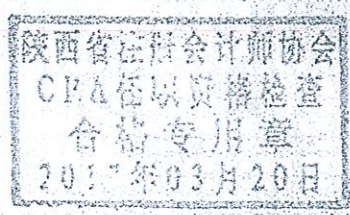 陕西省注册会计师协会
CPA任职资格检查
合格专用章
201 年03月20日